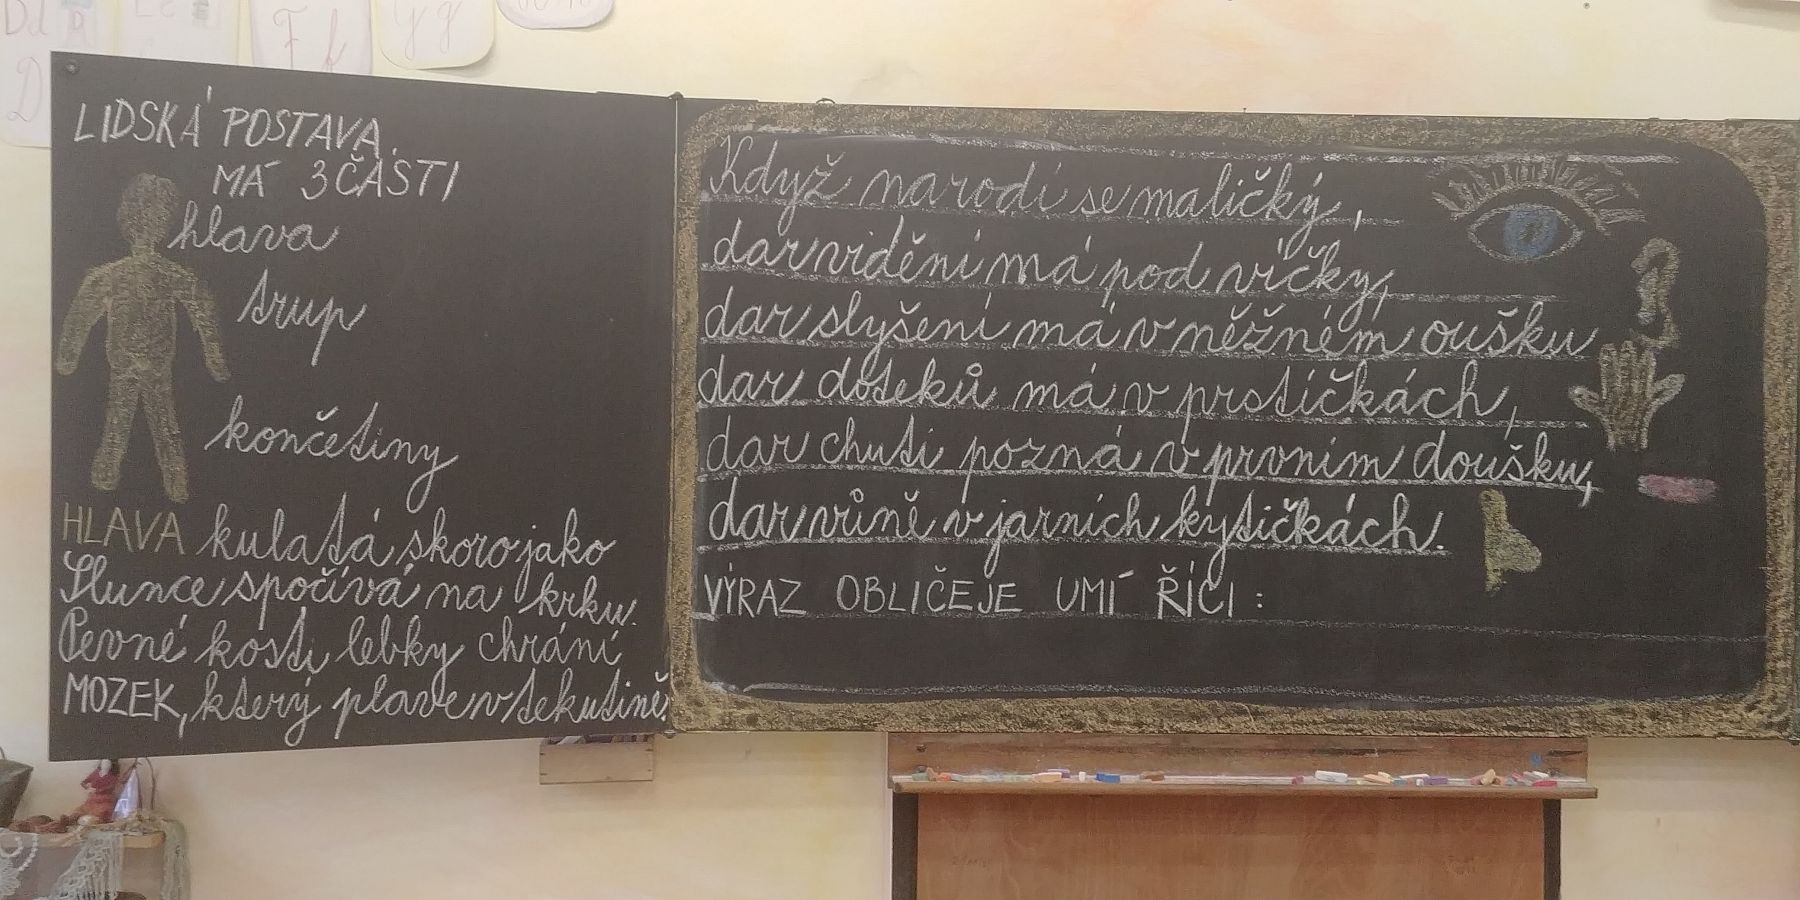 Dd
D
F f
G g
LIDSKÁ POSTAVA
MÁ 3 ČÁSTI
hlava
trup
končetiny
HLAVA kulatá skoro jako
Slunce spočívá na krku.
Pevné kosti lebky chrání
MOZEK, který plave v tekutině.
Když narodí se maličký,
dar vidění má pod víčky,
dar slyšení má v něžném oušku
dar doteků má v prstíčkách,
dar chuti pozná v prvním doušku,
dar vůně v jarních kytičkách.
VÝRAZ OBLIČEJE UMÍ ŘÍCI :